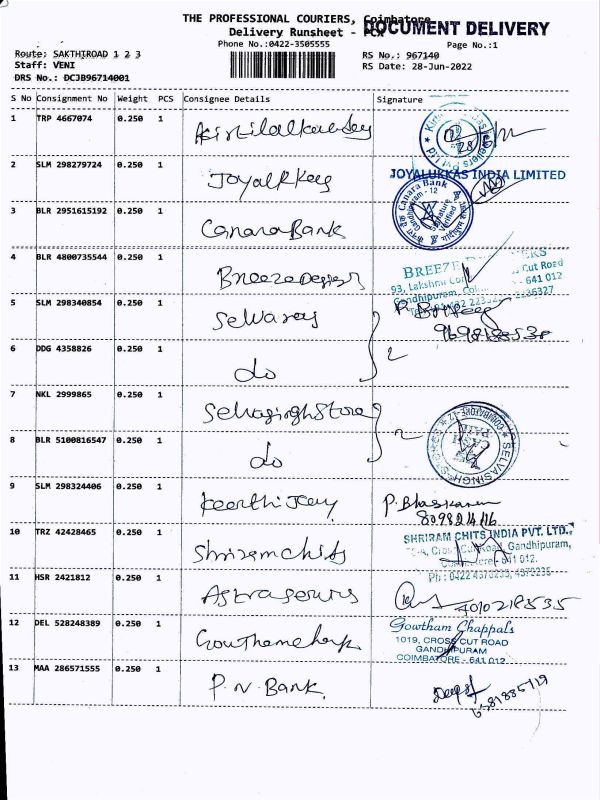 THE PROFESSIONAL COURIERS, Coimbatore
DOCUMENT DELIVERY
Delivery Runsheet - PCX
Phone No.:0422-3505555
Page No.:1
Route: SAKTHIROAD 1 2 3
RS No.: 967140
Staff: VENI
RS Date: 28-Jun-2022
DRS No.: DCJB96714001
S No Consignment No Weight PCS Consignee Details Signature
1 TRP 4667074 0.250 1
2 SLM 298279724 0.250 1 Joyalukkas JOYALUKKAS INDIA LIMITED
3 BLR 2951615192 0.250 1 Canara Bank Canara Bank Gandhipuram - 12 Signature Verified
4 BLR 4800735544 0.250 1 Breeze BREEZE
93, Lakshmi Cut Road
Gandhipuram, 641 012
5 SLM 298340854 0.250 1 Selvaraj
6 DDG 4358826 0.250 1 do 2
7 NKL 2999865 0.250 1 Selvasingh Store
8 BLR 5100816547 0.250 1 do 2 SELVASINGH STORES COIMBATORE-12
9 SLM 298324406 0.250 1 P. Bhaskaran
10 TRZ 42428465 0.250 1 Shriram chits SHRIRAM CHITS INDIA PVT. LTD.,
Cut Road, Gandhipuram,
641 012.
Ph : 0422 4370235, 4379235
11 HSR 2421812 0.250 1
12 DEL 528248389 0.250 1 Gowtham Chappals
1019, CROSS CUT ROAD
GANDHIPURAM
COIMBATORE - 641 012
13 MAA 286571555 0.250 1 P.N. Bank